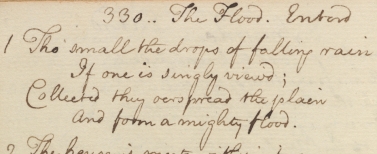 330.. The Flood. Enterd
1 Tho' small the drops of falling rain
If one is singly viewd;
Collected they overspread the plain
And form a mighty flood.
2 The house is